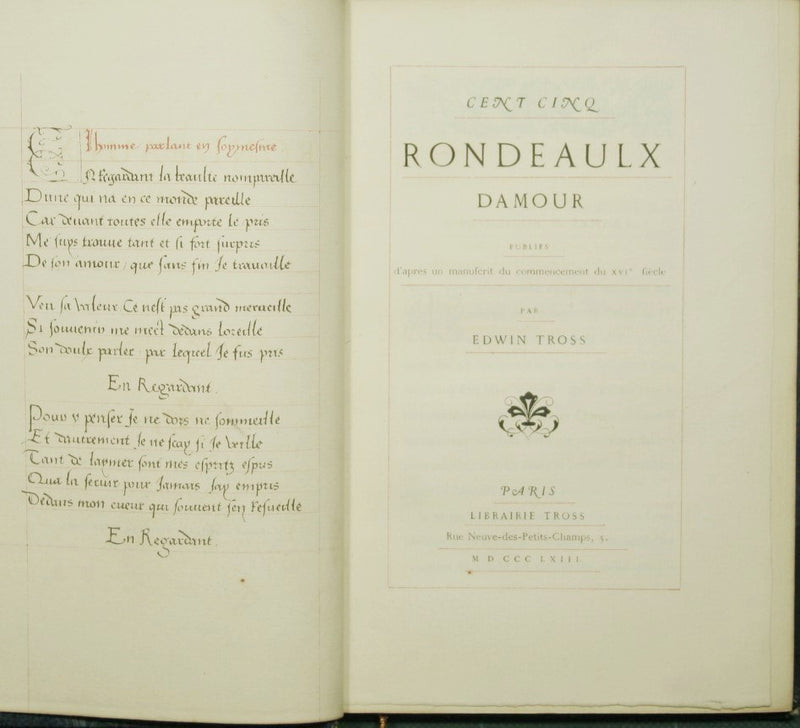 Lhomme parlant en soymesme
En Regardant la beaulte nompareille
Dune qui na en ce monde pareille
Car devant toutes elle emporte le pris
Me suys trouue tant et si fort surpris
De son amour, que sans fin Je travaille
Veu sa valeur Ce nest pas grand merveille
Si souuenir me mect dedans loreille
Son doulx parler par lequel Je fus pris
En Regardant.
Pour y penser Je ne dors ne sommeille
Et dautrement Je ne scay si Je veille
Tant de laymer sont mes espritz espris
Qua la seruir pour Jamais Jay empris
Dedans mon cueur qui souuent sen Resueille
En Regardant.
CENT CINQ
RONDEAULX
DAMOUR
PUBLIES
d'apres un manuscrit du commencement du XVIe siècle
PAR
EDWIN TROSS
PARIS
LIBRAIRIE TROSS
Rue Neuve-des-Petits-Champs, 5.
M D CCC LXIII